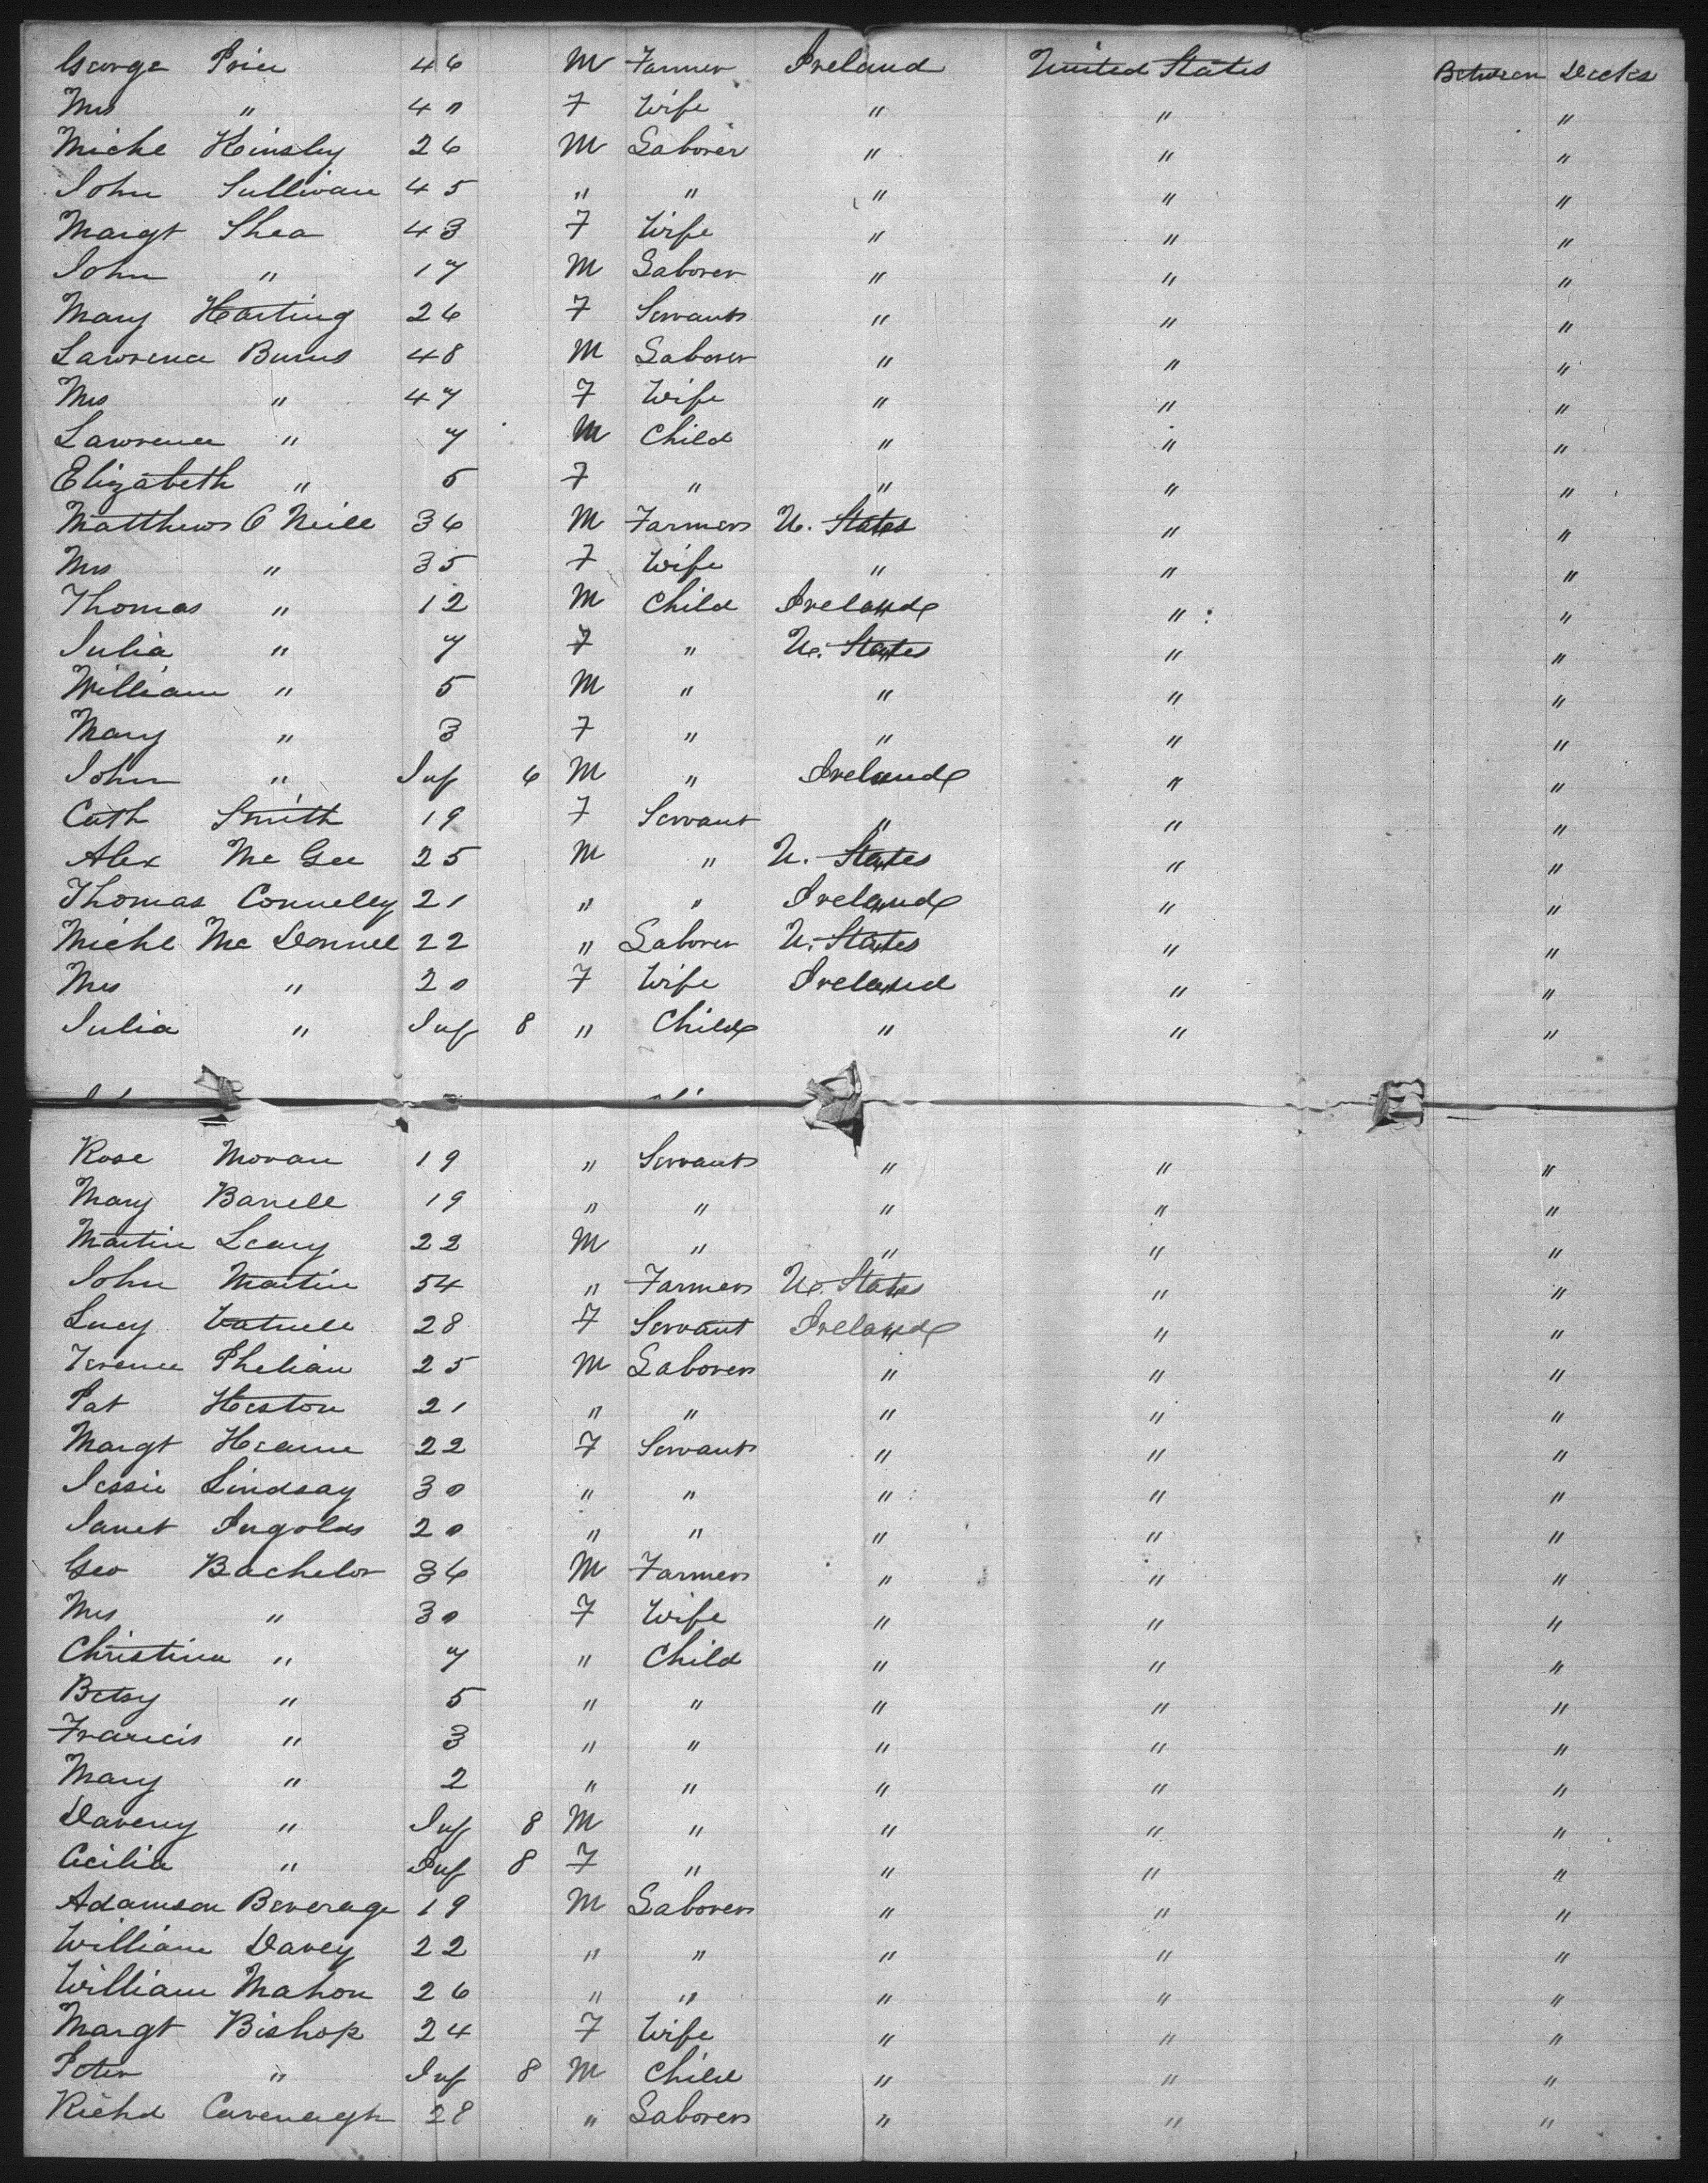 George Price 46 M Farmer Ireland United States Between Decks
Mrs " 40 F Wife " " "
Michl Hinsley 26 M Laborer " " "
John Sullivan 45 " " " " "
Margt Shea 43 F Wife " " "
John " 17 M Laborer " " "
Mary Harting 26 F Servant " " "
Lawrence Burns 48 M Laborer " " "
Mrs " 47 F Wife " " "
Lawrence " 7 M Child " " "
Elizabeth " 5 F " " " "
Matthew O Neill 36 M Farmer U. States " "
Mrs " 35 F Wife " " "
Thomas " 12 M Child Ireland " "
Julia " 7 F " U. States " "
William " 5 M " " " "
Mary " 3 F " " " "
John " Inf 6 M " Ireland " "
Cath Smith 19 F Servant " " "
Alex Mc Gee 25 M " U. States " "
Thomas Connelly 21 " " Ireland " "
Michl Mc Donnell 22 " Laborer U. States " "
Mrs " 20 F Wife Ireland " "
Julia " Inf 8 " Child " " "
Rose Moran 19 " Servant " " "
Mary Barrell 19 " " " " "
Martin Leary 22 M " " " "
John Martin 54 " Farmer U. States " "
Lucy 28 F Servant Ireland " "
Terence Phelian 25 M Laborer " " "
Pat Heston 21 " " " " "
Margt Hearne 22 F Servant " " "
Jessie Lindsay 30 " " " " "
Janet Ingolds 20 " " " " "
Geo Bachelor 36 M Farmer " " "
Mrs " 30 F Wife " " "
Christina " 7 " Child " " "
Betsy " 5 " " " " "
Francis " 3 " " " " "
Mary " 2 " " " " "
Daveny " Inf 8 M " " " "
Cicilia " Inf 8 F " " " "
Adamson Beverage 19 M Laborer " " "
William Davey 22 " " " " "
William Mahon 26 " " " " "
Margt Bishop 24 F Wife " " "
Peter " Inf 8 M Child " " "
Richd Cavenagh 28 " Laborer " " "